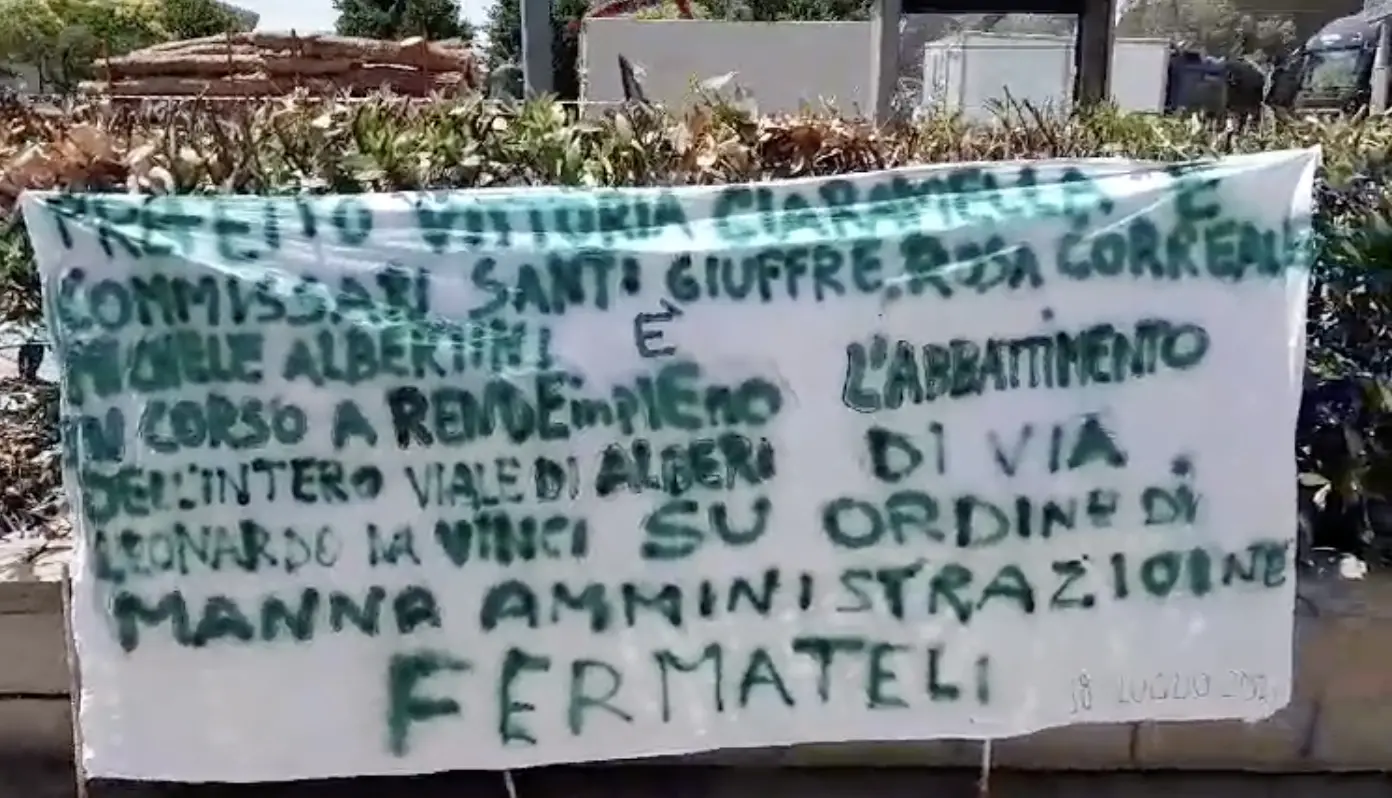 PREFETTO VITTORIA CIARAMELLA E
COMMISSARI SANTI GIUFFRE, ROSA CORREALE
MICHELE ALBERTINI È
IN CORSO A RENDE mPIEno L'ABBATTIMENTO
DELL'INTERO VIALE DI ALBERI DI VIA
LEONARDO DA VINCI SU ORDINE DI
MANNA AMMINISTRAZIOINE
FERMATELI
18 LUGLIO